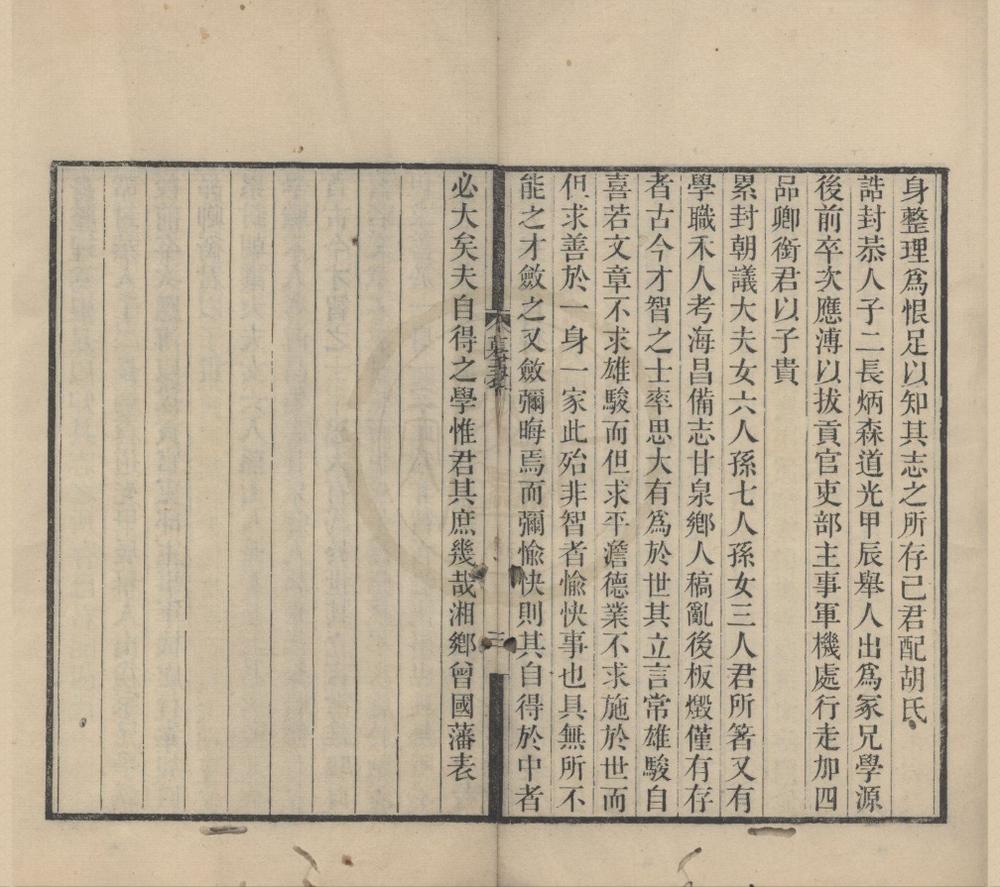 身整理爲恨足以知其志之所存已君配胡氏
誥封恭人子二長炳森道光甲辰舉人出爲冢兄學源
後前卒次應溥以拔貢官吏部主事軍機處行走加四
品卿銜君以子貴
累封朝議大夫女六人孫七人孫女三人君所箸又有
學職禾人考海昌備志甘泉鄉人稿亂後板燬僅有存
者古今才智之士率思大有爲於世其立言常雄駿自
喜若文章不求雄駿而但求平澹德業不求施於世而
但求善於一身一家此殆非智者愉快事也具無所不
能之才斂之又斂彌晦焉而彌愉快則其自得於中者
墓表
三
必大矣夫自得之學惟君其庶幾哉湘鄉曾國藩表